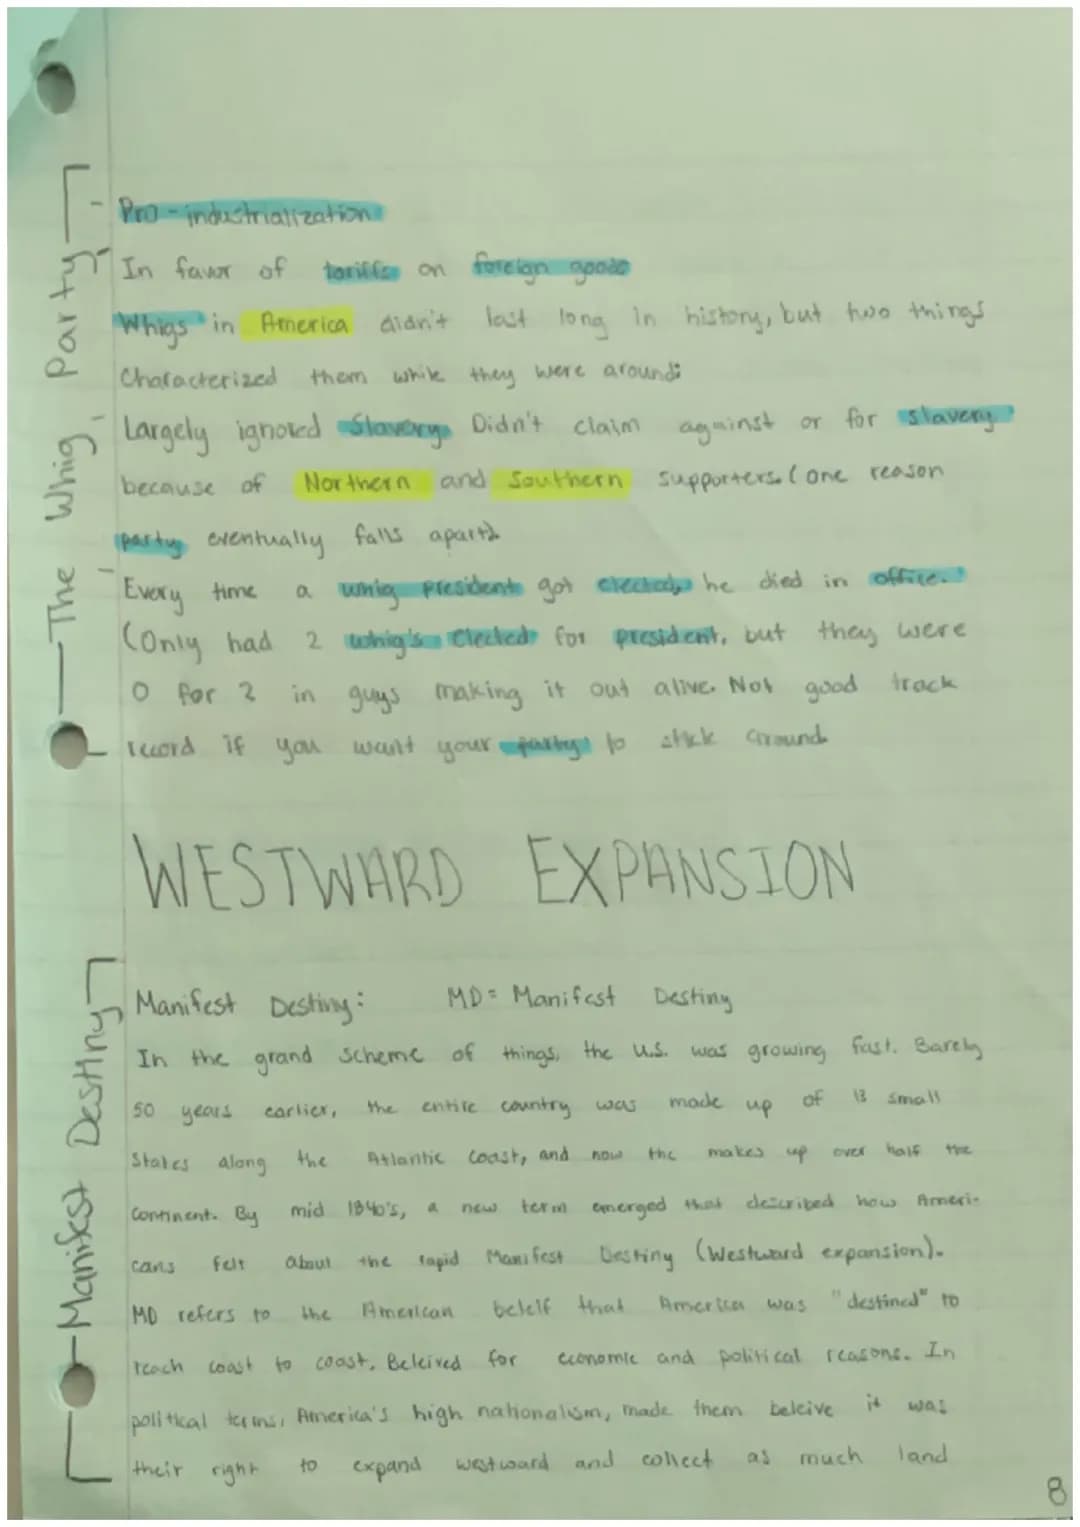 The Whig Party
- Pro-industrialization
- In favor of tariffs on foreign goods
Whigs in America didn't last long in history, but two things
Characterized them while they were around:
- Largely ignored Slavery. Didn't claim against or for slavery
because of Northern and Southern supporters. (one reason
party eventually falls apart).
- Every time a whig president got elected, he died in office.
(Only had 2 whig's elected for president, but they were
0 for 2 in guys making it out alive. Not good track
record if you want your party to stick around.
WESTWARD EXPANSION
Manifest Destiny
Manifest Destiny: MD= Manifest Destiny
In the grand scheme of things, the U.S. was growing fast. Barely
50 years earlier, the entire country was made up of 13 small
States along the Atlantic Coast, and now the makes up over half the
continent. By mid 1840's, a new term emerged that described how Ameri-
cans felt about the rapid Manifest Destiny (Westward expansion).
MD refers to the American beleif that America was "destined" to
reach coast to coast. Beleived for economic and political reasons. In
political terms, America's high nationalism, made them beleive it was
their right to expand westward and collect as much land
8